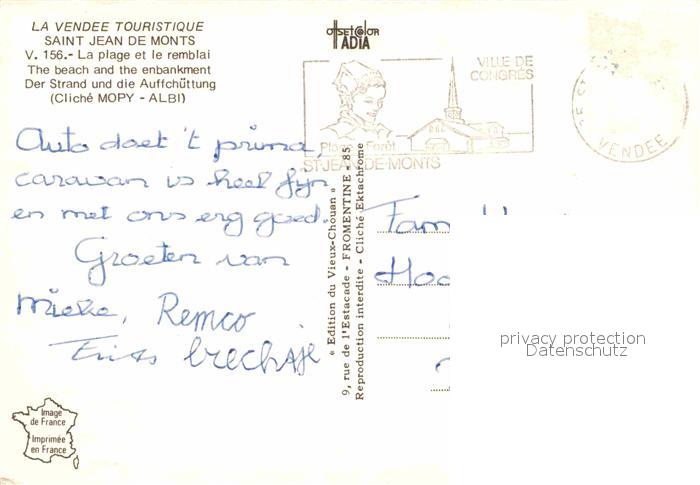 LA VENDEE TOURISTIQUE
SAINT JEAN DE MONTS
V. 156.- La plage et le remblai
The beach and the enbankment
Der Strand und die Auffchüttung
(Cliché MOPY - ALBI)
offset color
ADIA
VILLE DE
CONGRÈS
Plage Forêt
ST JEAN-DE-MONTS
VENDEE
Auto doet 't prima,
caravan is heel fijn
en met ons erg goed.
Groeten van
Mieke, Remco
« Edition du Vieux-Chouan »
9, rue de l'Estacade - FROMENTINE - 85
Reproduction interdite - Cliché Ektachrome
Fam
privacy protection
Datenschutz
Image
de France
Imprimée
en France